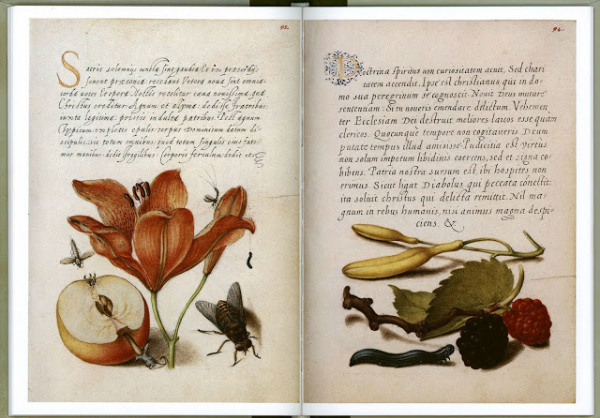 92.
Sacris solemnijs iuncta sint gaudia Et ex præcordijs
sonent præconia, recedant Vetera noua sint omnia
corda voces et opera. Noctis recolitur cœna nouissima, qua
Christus creditur Agnum et azyma dedisse fratribus
iuxta legitima, priscis indulta patribus. Post agnum
typicum expletis epulis corpus Dominicum datum di
scipulis, sic totum omnibus quod totum singulis eius fate
mur manibus dedit fragilibus Corporis ferculum dedit etc.
94.
Doctrina spiritus non curiositatem acuit, Sed chari
tatem accendit. Ipse est christianus qui in do
mo sua peregrinum se cognoscit. Noui
sententiam: Si non noueris emendare delictum. Vehemen
ter Ecclesiam Dei destruit meliores laicos esse quam
clericos. Quocunque tempore non cogitaueris Deum
putate tempus illud amisisse Pudicitia est virtus
non solum impetum libidinis coercens, sed et signa co
hibens. Patria nostra sursum est, ibi hospites non
erimus. Sicut ligat Diabolus qui peccata connectit:
ita soluit christus qui delicta remittit. Nil ma
gnum in rebus humanis, nisi animus magna despi
ciens. &